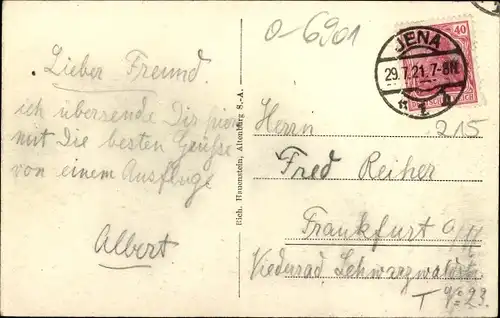 0-6901
JENA
29.7.21.7-8N
40
Lieber Freund.
ich übersende Dir hier
mit Die besten Grüße
von einem Ausfluge
Albert
Rich. Hauenstein, Altenburg S.-A.
Herrn
215
Fred Reiher
Frankfurt a/M
Niederrad, Schwarzwaldstr